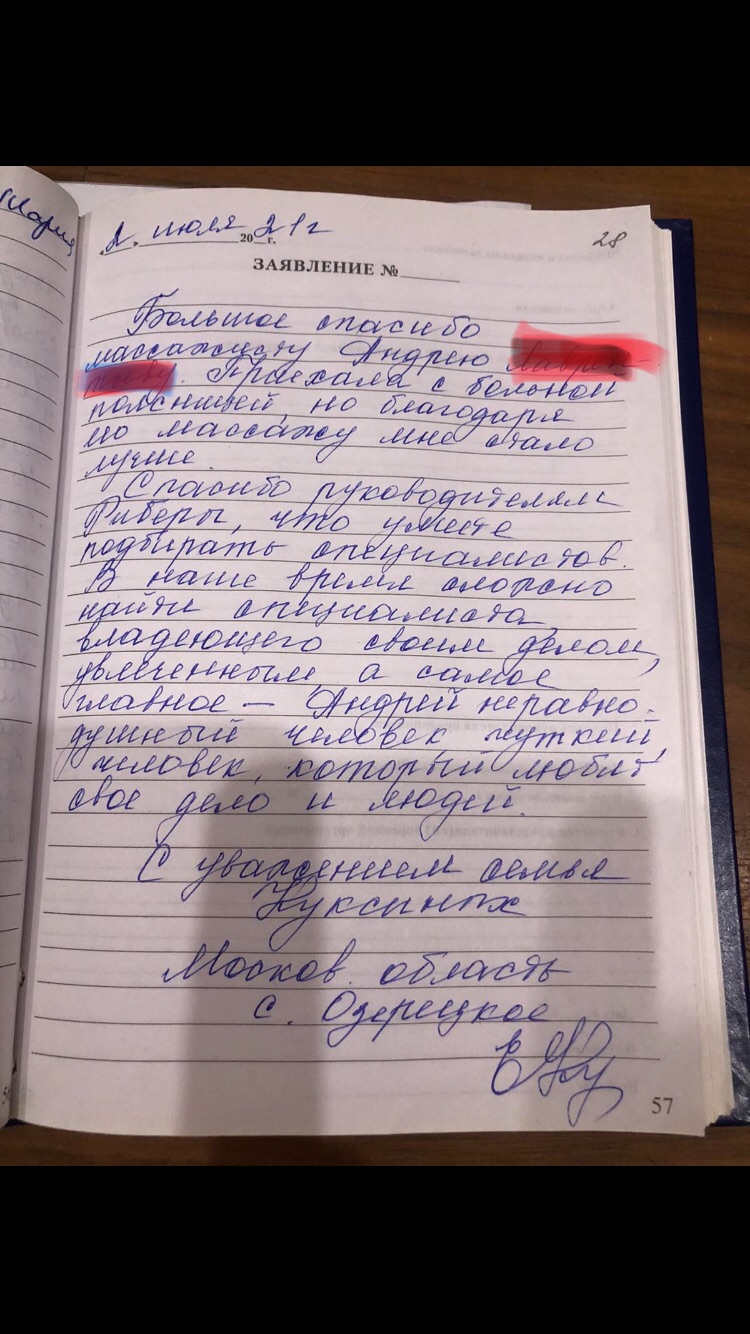 Мария
2. июля 2021г
20 г.
28
ЗАЯВЛЕНИЕ №
Большое спасибо
массажисту Андрею
. Приехала с больной
поясницей, но благодаря
его массажу мне стало
лучше.
Спасибо руководителям
Риберы, что умеете
подбирать специалистов.
В наше время сложно
найти специалиста,
владеющего своим делом,
увлеченным, а самое
главное — Андрей неравно-
душный человек чуткий,
человек, который любит
свое дело и людей.
С уважением семья
Куксиных
Москов. область
с. Озерецкое
57